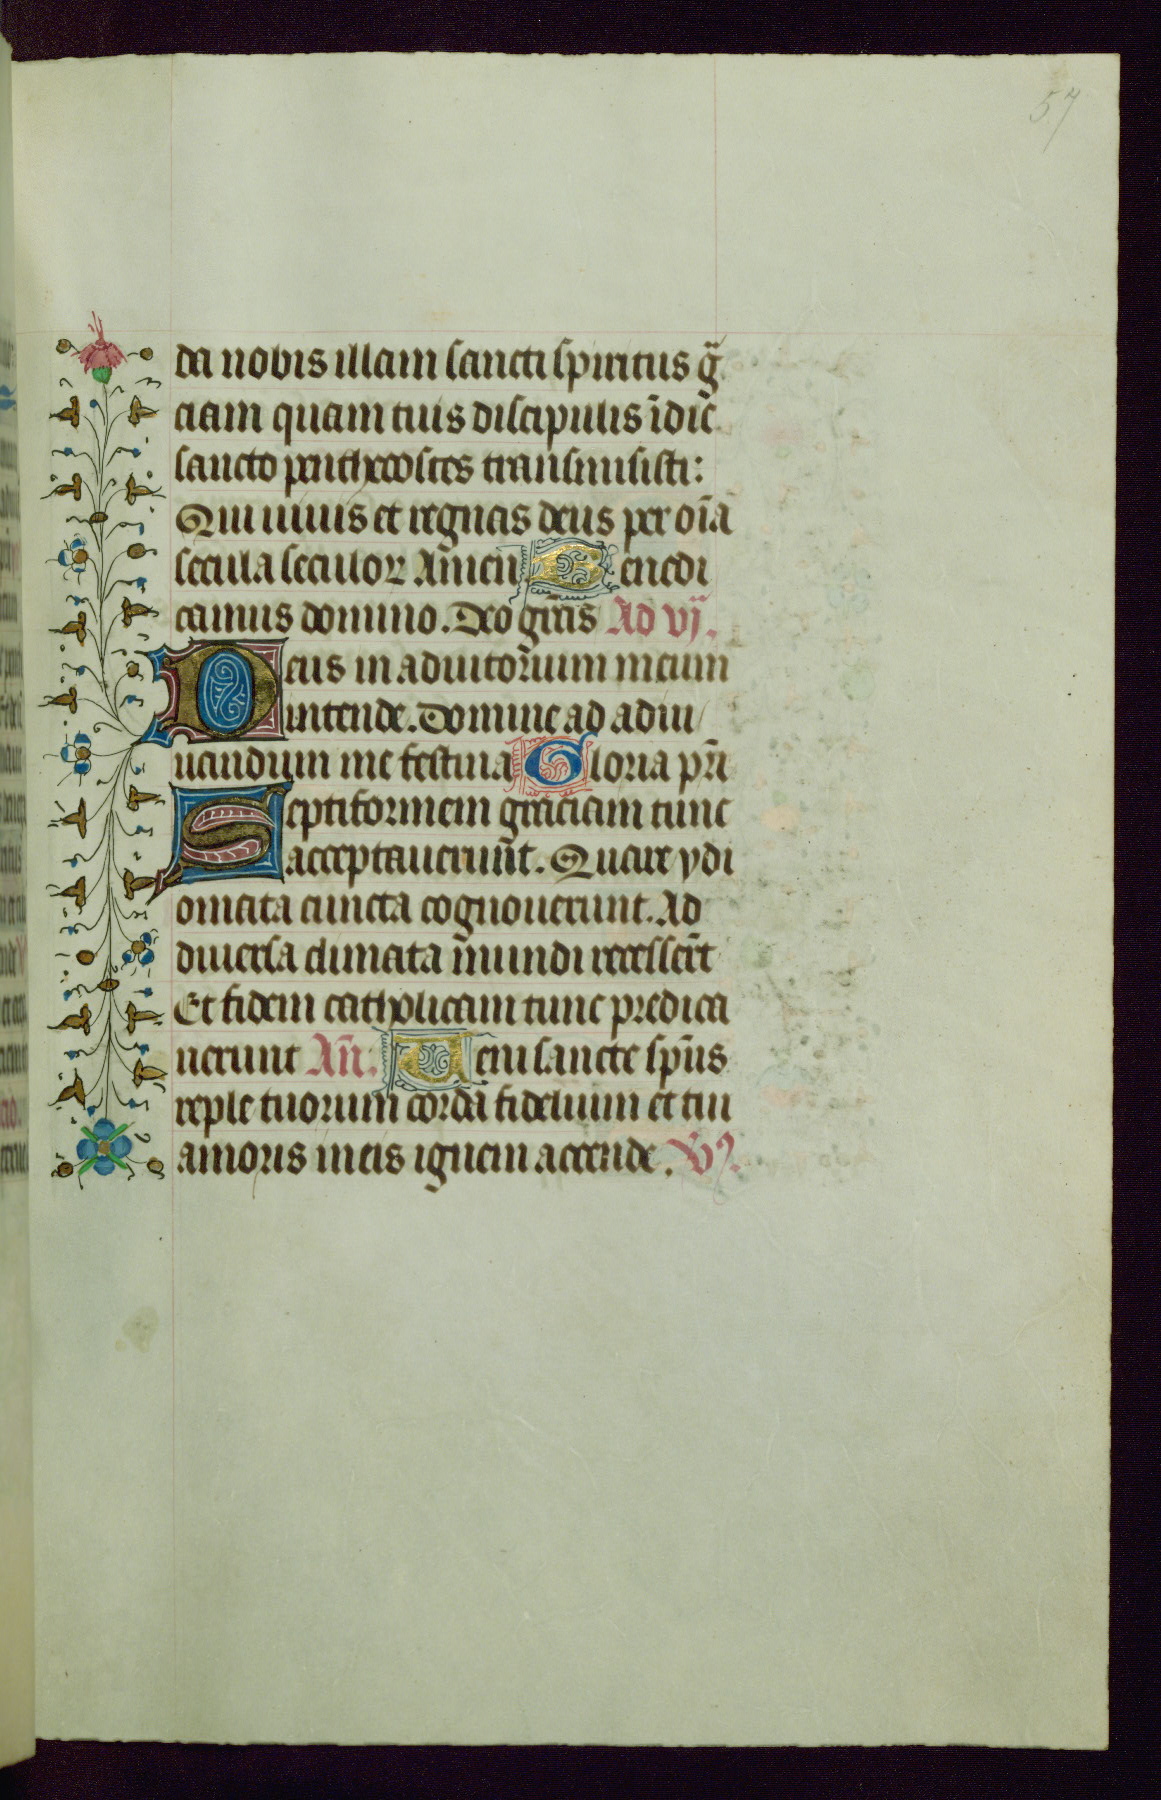 57
da nobis illam sancti spiritus gr̄a
ciam quam tuis discipulis ī dic̄
sancto penthecostes transmisisti:
Qui uiuis et regnas deus per oīa
secula seculoꝝ Amen Benedi
camus domino. Deo grās Ad vj̄.
Deus in adiutorium meum
intende. Domine ad adiu
uandum me festina Gloria pr̄i
Septiformem graciam tunc
acceptauerun̄t. Quare ydi
omata cuncta cognouerunt. Ad
diuersa climata mundi recesser̄t
Et fidem catholicam tunc predica
uerunt An̄. Ueni sancte sp̄us
reple tuorum corda fidelium et tui
amoris in eis ignem accende. V̷.